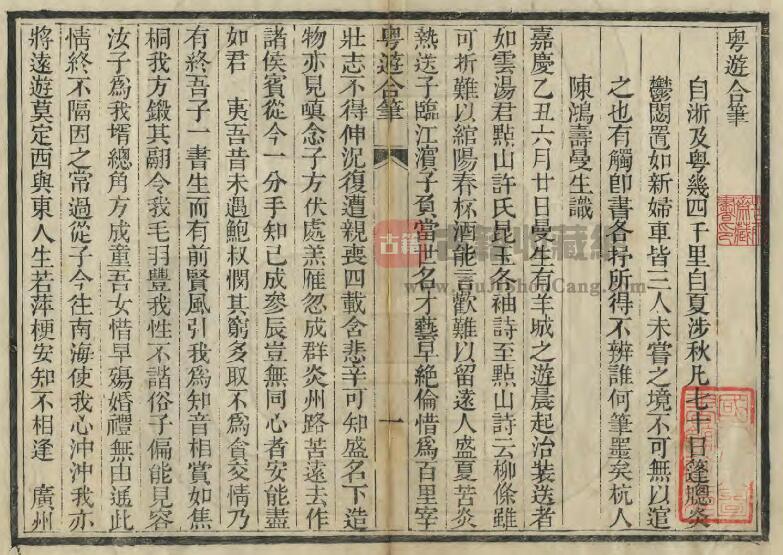 粤遊合筆
自浙及粤幾四千里自夏涉秋凡七十日篷䆫炎
鬱閟置如新婦車皆三人未嘗之境不可無以𨓏
之也有觸卽書各抒所得不辨誰何筆墨矣杭人
陳鴻壽曼生識
嘉慶乙丑六月廿日曼生有羊城之遊晨起治装送者
如雲湯君㸃山許氏昆玉各袖詩至㸃山詩云柳條雖
可折難以綰陽春杯酒能言歡難以留遠人盛夏苦炎
熱送子臨江濱子負當世名才藝早絶倫惜爲百里宰
粤遊合筆
一
壯志不得伸況復遭親喪四載含悲辛可知盛名下造
物亦見嗔念子方伏處羔雁忽成群炎州路苦遠去作
諸侯賓從今一分手知已成參辰豈無同心者安能盡
如君 夷吾昔未遇鮑叔憫其窮多取不爲貪交情乃
有終吾子一書生而有前賢風引我爲知音相賞如焦
桐我方鎩其翮令我毛羽豐我性不諧俗子偏能見容
汝子爲我壻總角方成童吾女惜早殤婚禮無由通此
情終不隔因之常過從子今往南海使我心沖沖我亦
將遠遊莫定西與東人生若萍梗安知不相逢 廣州
古籍
www.GuJiShouCang.com